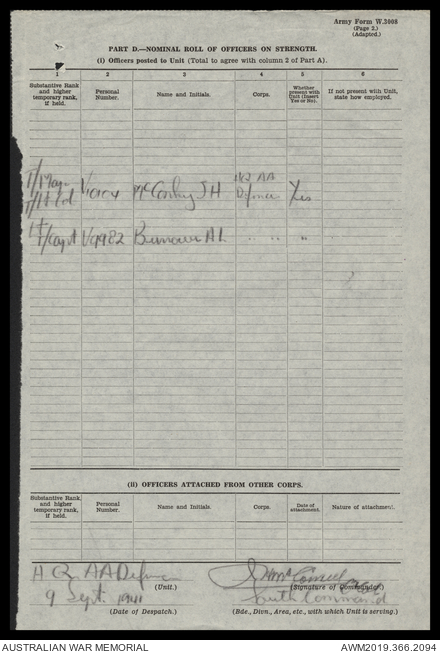 Army Form W.3008
(Page 2.)
(Adapted.)
PART D.—NOMINAL ROLL OF OFFICERS ON STRENGTH.
(i) Officers posted to Unit (Total to agree with column 2 of Part A).
1 2 3 4 5 6
Substantive Rank and higher temporary rank, if held. Personal Number. Name and Initials. Corps. Whether present with Unit (Insert Yes or No). If not present with Unit, state how employed.
HQ AA
T/Major J H Defence Yes
T/Lt Col
Lt
T/Capt V9982 A L " " "
(ii) OFFICERS ATTACHED FROM OTHER CORPS.
Substantive Rank and higher temporary rank, if held. Personal Number. Name and Initials. Corps. Date of attachment. Nature of attachment.
H Q AA Defence
(Unit.) (Signature of Commander.)
9 Sept. 1941 South Command
(Date of Despatch.) (Bde., Divn., Area, etc., with which Unit is serving.)
AUSTRALIAN WAR MEMORIAL AWM2019.366.2094